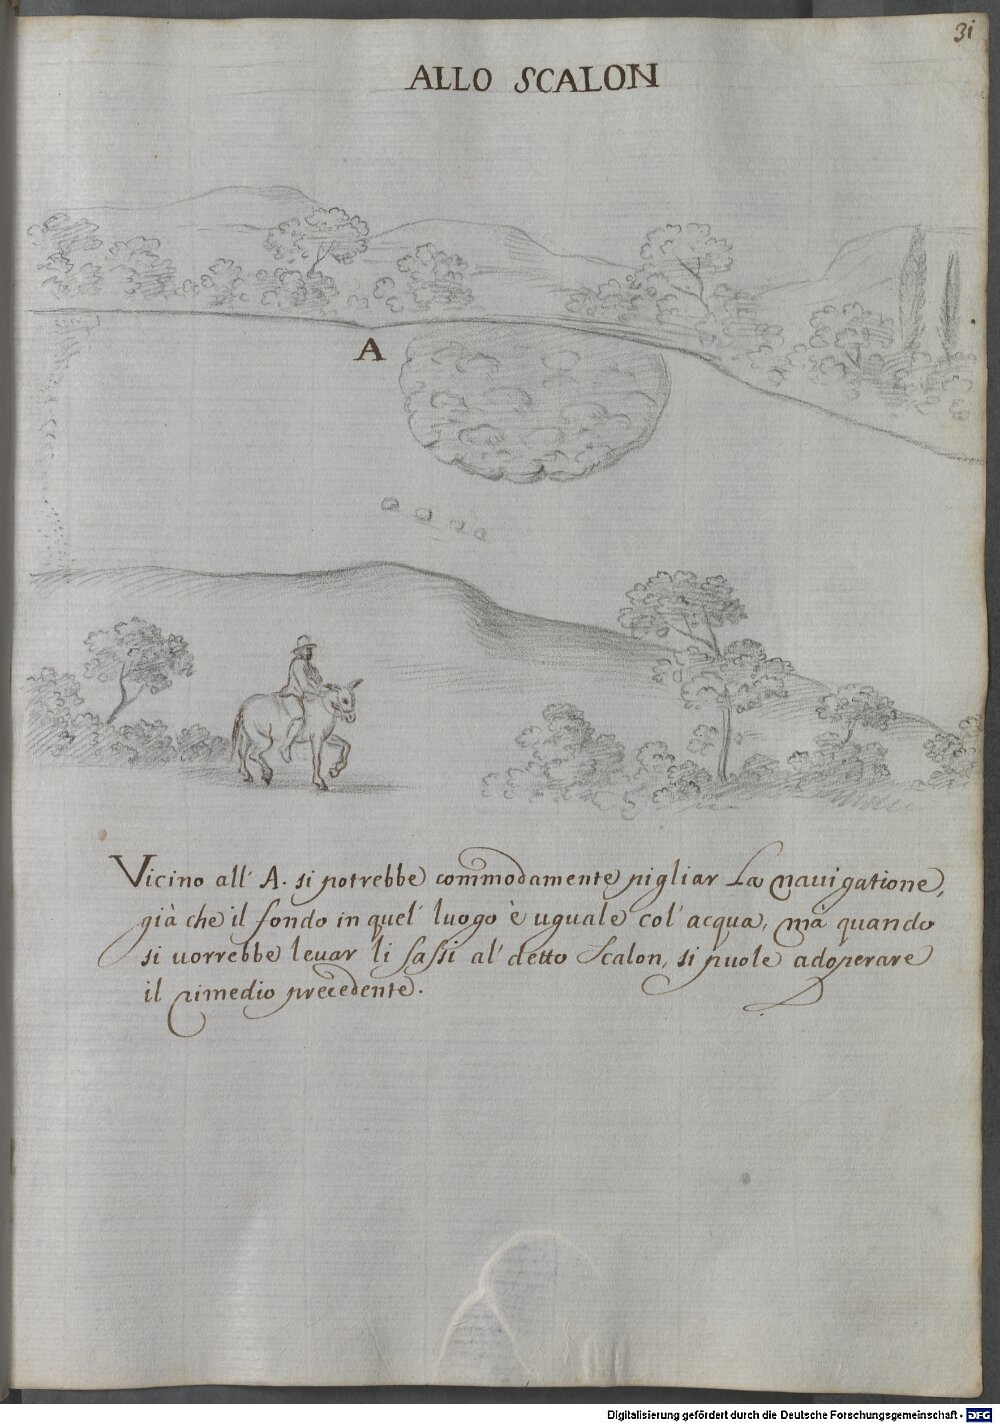 31
ALLO SCALON
A
Vicino all' A. si potrebbe commodamente pigliar La nauigatione,
già che il fondo in quel' luogo è uguale col' acqua, mà quando
si uorrebbe leuar li sassi al' detto Scalon, si puole adoperare
il rimedio precedente.
Digitalisierung gefördert durch die Deutsche Forschungsgemeinschaft - DFG